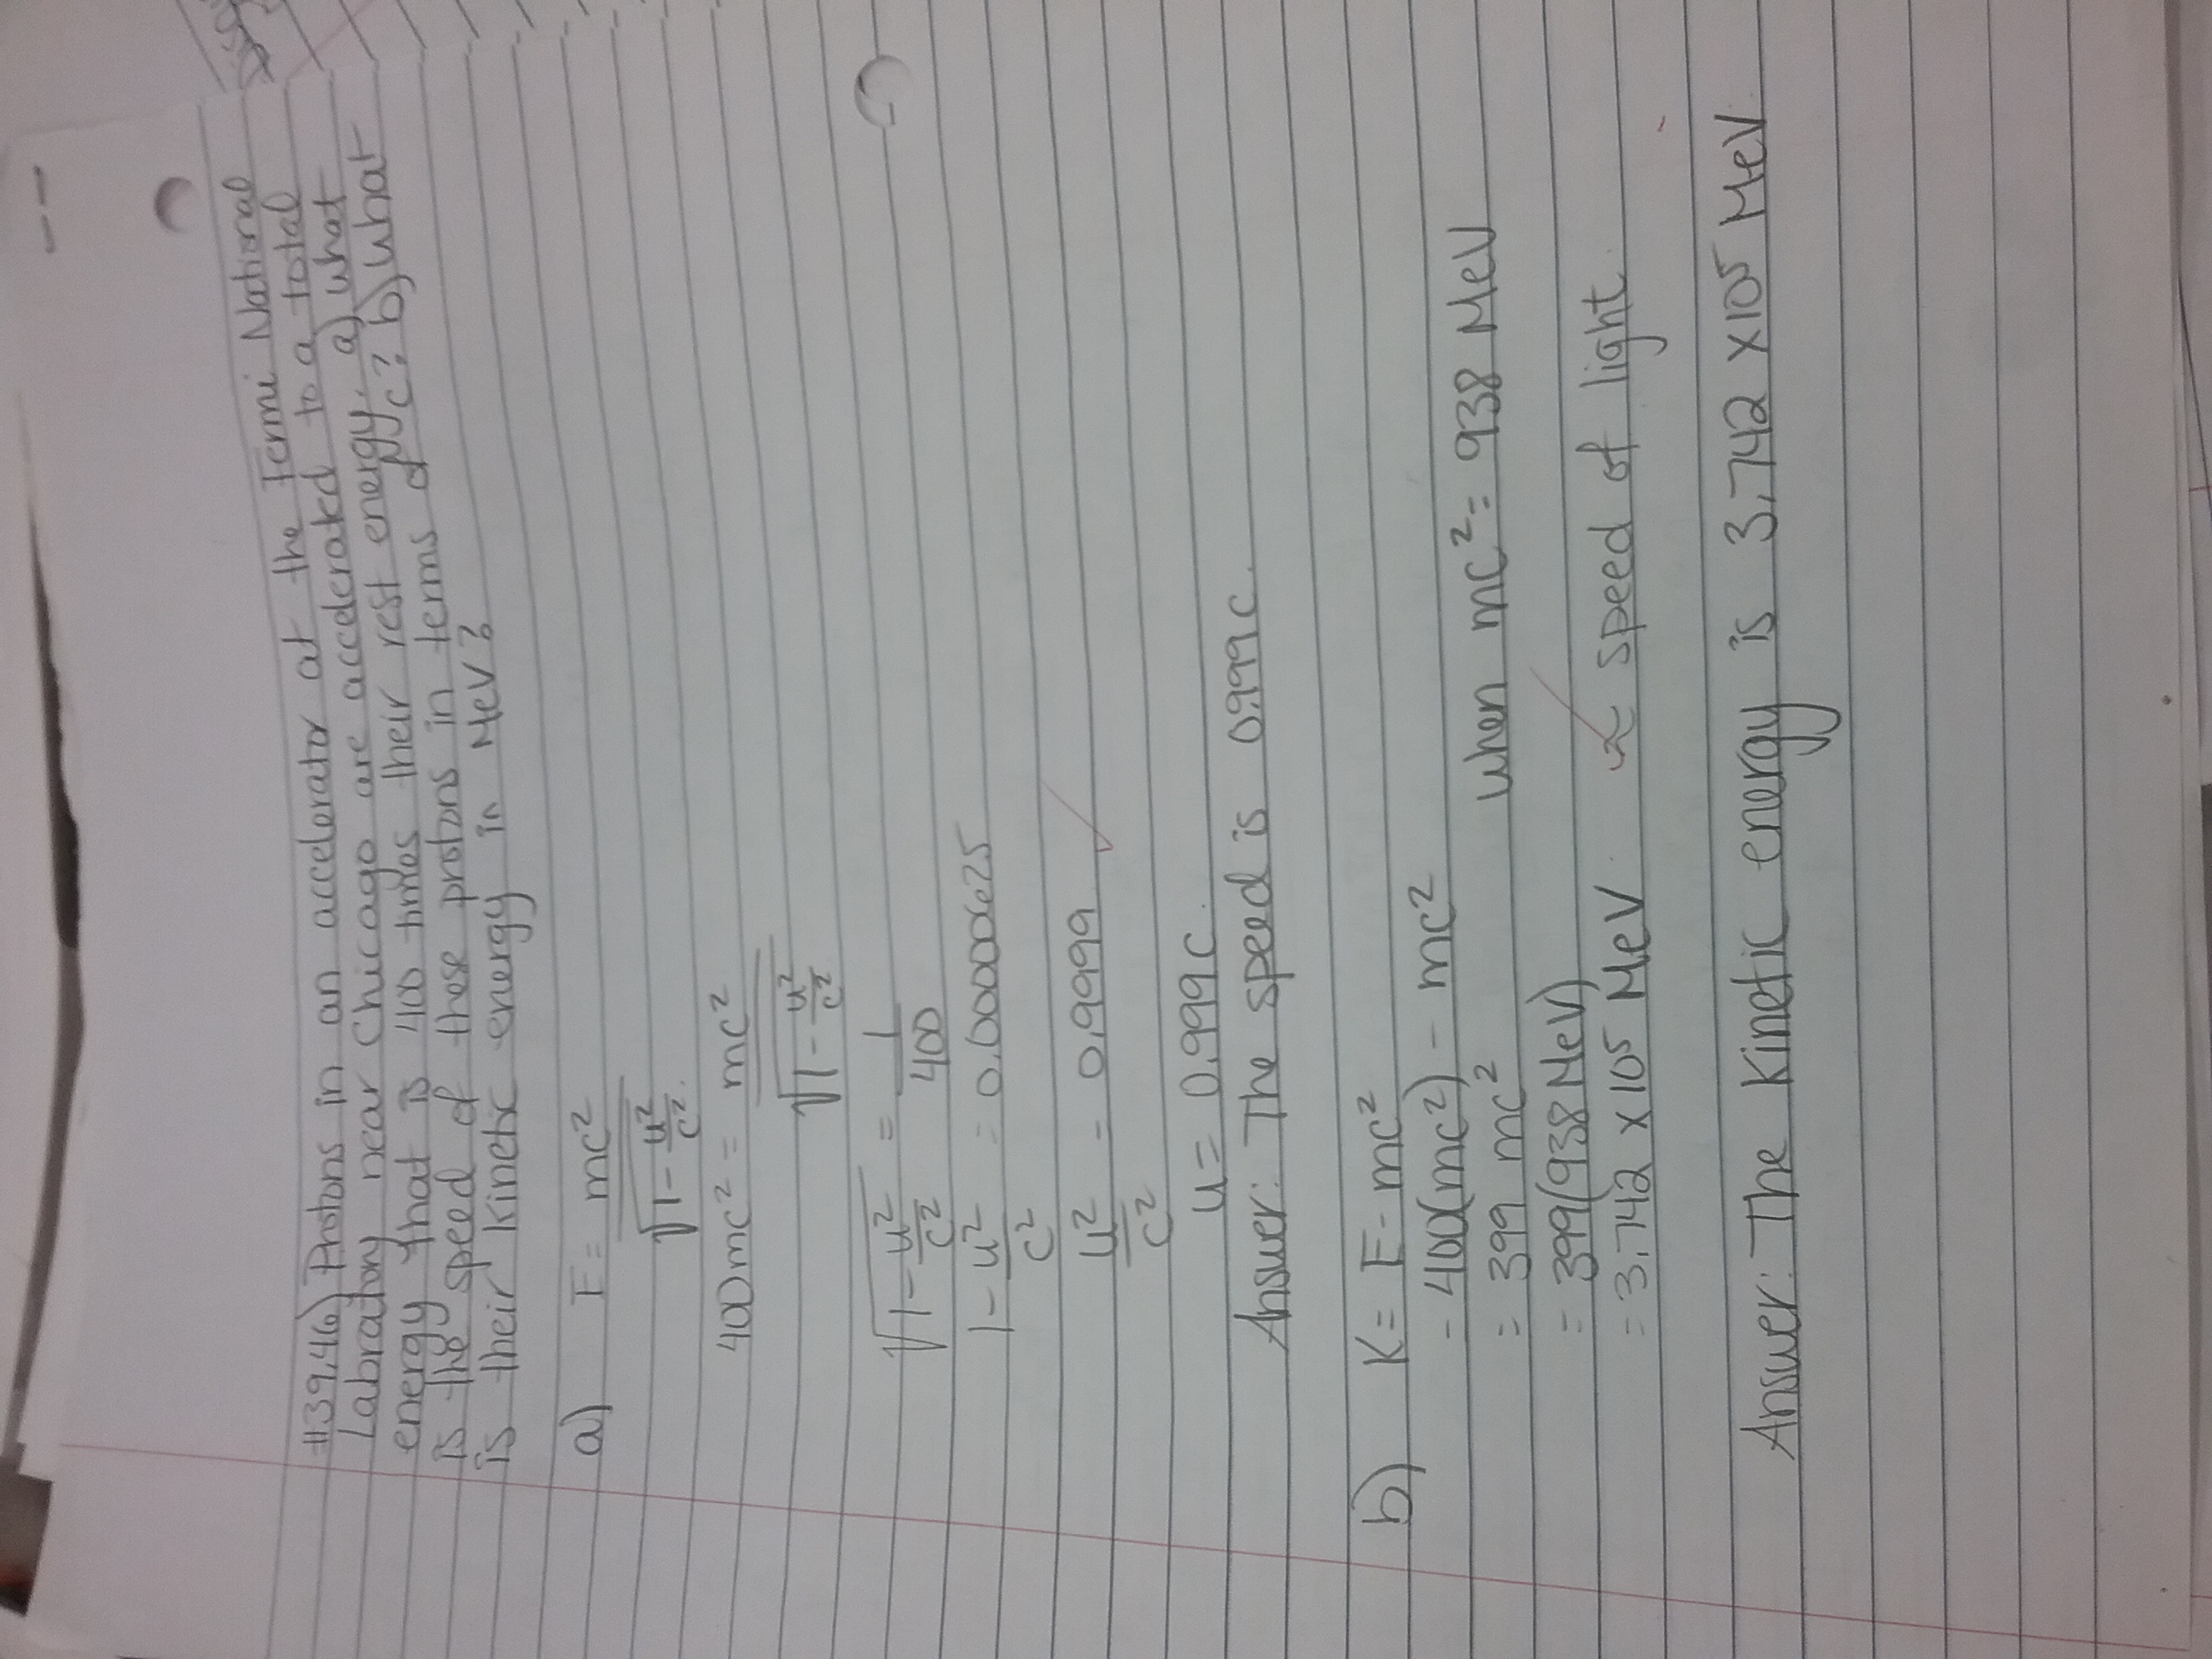 #39.46) Protons in an accelerator at the Fermi National
Labratory near Chicago are accelerated to a total
energy that is 400 times their rest energy. a) what
is the speed of these protons in terms of c? b) what
is their kinetic energy in MeV?
a) E = mc²
√1 - u²/c²
400mc² = mc²
√1 - u²/c²
√1 - u²/c² = 1/400
1 - u²/c² = 0.00000625
u²/c² = 0.9999
u = 0.999c.
Answer: The speed is 0.999c.
b) K = E - mc²
= 400(mc²) - mc²
= 399 mc² when mc² = 938 MeV
= 399(938 MeV)
= 3.742 x 10⁵ MeV. ≈ speed of light.
Answer: The Kinetic energy is 3.742 x10⁵ MeV.